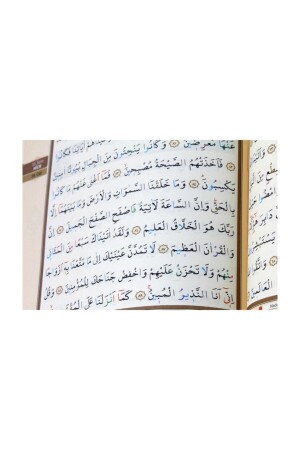 اٰيَاتِنَا فَكَانُوا
عَنْهَا مُعْرِضِينَۙ وَكَانُوا يَنْحِتُونَ مِنَ الْجِبَالِ بُيُوتًا اٰمِنِينَ
فَاَخَذَتْهُمُ الصَّيْحَةُ مُصْبِحِينَۙ فَمَٓا اَغْنٰى عَنْهُمْ مَا كَانُوا
يَكْسِبُونَۜ وَمَا خَلَقْنَا السَّمٰوَاتِ وَالْاَرْضَ وَمَا بَيْنَهُمَٓا اِلَّا
بِالْحَقِّۜ وَاِنَّ السَّاعَةَ لَاٰتِيَةٌ فَاصْفَحِ الصَّفْحَ الْجَمِيلَ اِنَّ
رَبَّكَ هُوَ الْخَلَّاقُ الْعَلِيمُ وَلَقَدْ اٰتَيْنَاكَ سَبْعًا مِنَ الْمَثَانِي
وَالْقُرْاٰنَ الْعَظِيمَ لَا تَمُدَّنَّ عَيْنَيْكَ اِلٰى مَا مَتَّعْنَا بِهٖٓ اَزْوَاجًا
مِنْهُمْ وَلَا تَحْزَنْ عَلَيْهِمْ وَاخْفِضْ جَنَاحَكَ لِلْمُؤْمِنِينَ وَقُلْ
اِنِّٓي اَنَا النَّذِيرُ الْمُبِينُۚ كَمَٓا اَنْزَلْنَا عَلَى
الْعَالَمِينَ